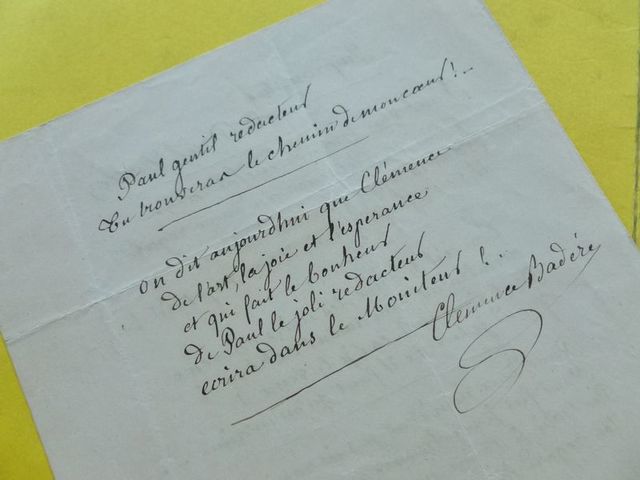 Paul gentil redacteur
Tu trouveras le chemin de mon coeur !..
on dit aujourdhui que Clémence
de l'art, la joie et l'esperance
et qui fait le bonheur
de Paul le joli redacteur
ecrira dans le Moniteur !..
Clemence Badère